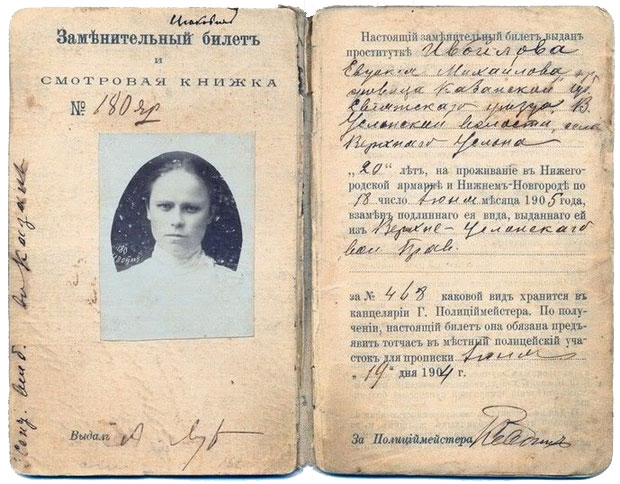 Замѣнительный билетъ
и
СМОТРОВАЯ КНИЖКА
№ 180 яр
Выдалъ
Настоящій замѣнительный билетъ выданъ
проституткѣ Ивойлова
Евдокия Михайлова, кр
девица Казанской губ
Свіяжскаго уезда, В
Услонской волости, села
Верхняго Услона
„20“ лѣтъ, на проживаніе въ Нижего-
родской ярмаркѣ и Нижнемъ-Новгородѣ по
18 число Июня мѣсяца 1905 года,
взамѣнъ подлиннаго ея вида, выданнаго ей
изъ Верхне-Услонскаго
вол Прав.
за № 468 каковой видъ хранится въ
канцеляріи Г. Полиціймейстера. По полу-
ченіи, настоящій билетъ она обязана предъ-
явить тотчасъ въ мѣстный полицейскій уча-
стокъ для прописки Июня
„19“ дня 1904 г.
За Полиціймейстера